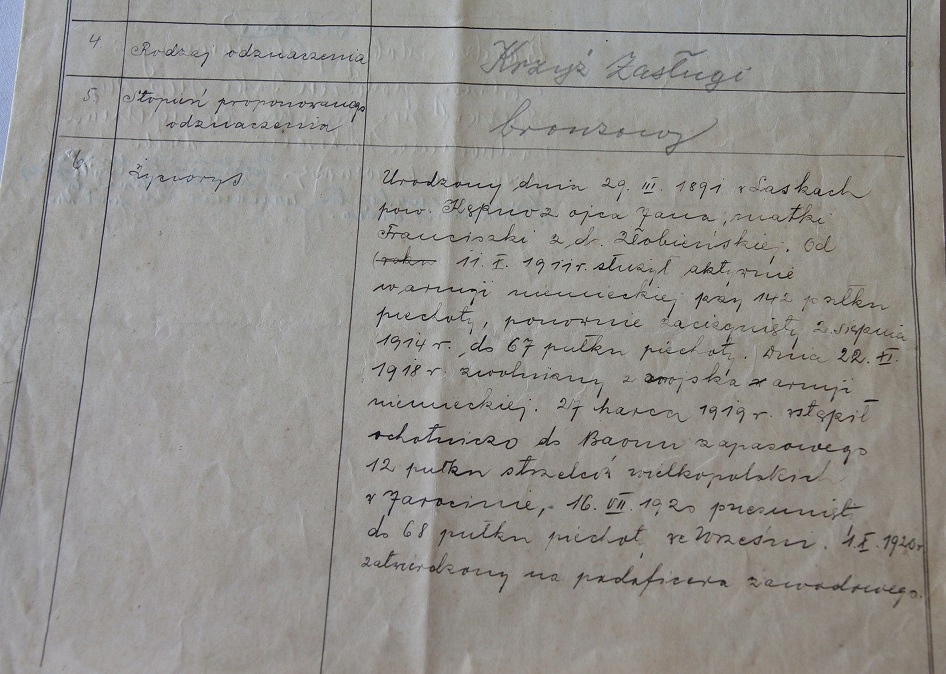 4 Rodzaj odznaczenia Krzyż Zasługi
5 Stopień proponowanego
odznaczenia bronzowy
6. Życiorys
Urodzony dnia 29. III. 1891 w Laskach
pow. Kępno z ojca Jana, matki
Franciszki z d. Złobieńskiej. Od
11. X. 1911 r. służył aktywnie
w armji niemieckiej przy 142 pułku
piechoty, ponownie zaciągnięty 2. sierpnia
1914 r. do 67 pułku piechoty. Dnia 22. XI.
1918 r. zwolniany z armji
niemieckiej. 27 marca 1919 r. wstąpił
ochotniczo do Baonu zapasowego
12 pułku strzelców wielkopolskich
w Jarocinie, 16. VII. 1920 przesunięt
do 68 pułku piechoty we Wrześni. 1. X. 1920 r.
zatwierdzony na podoficera zawodowego.